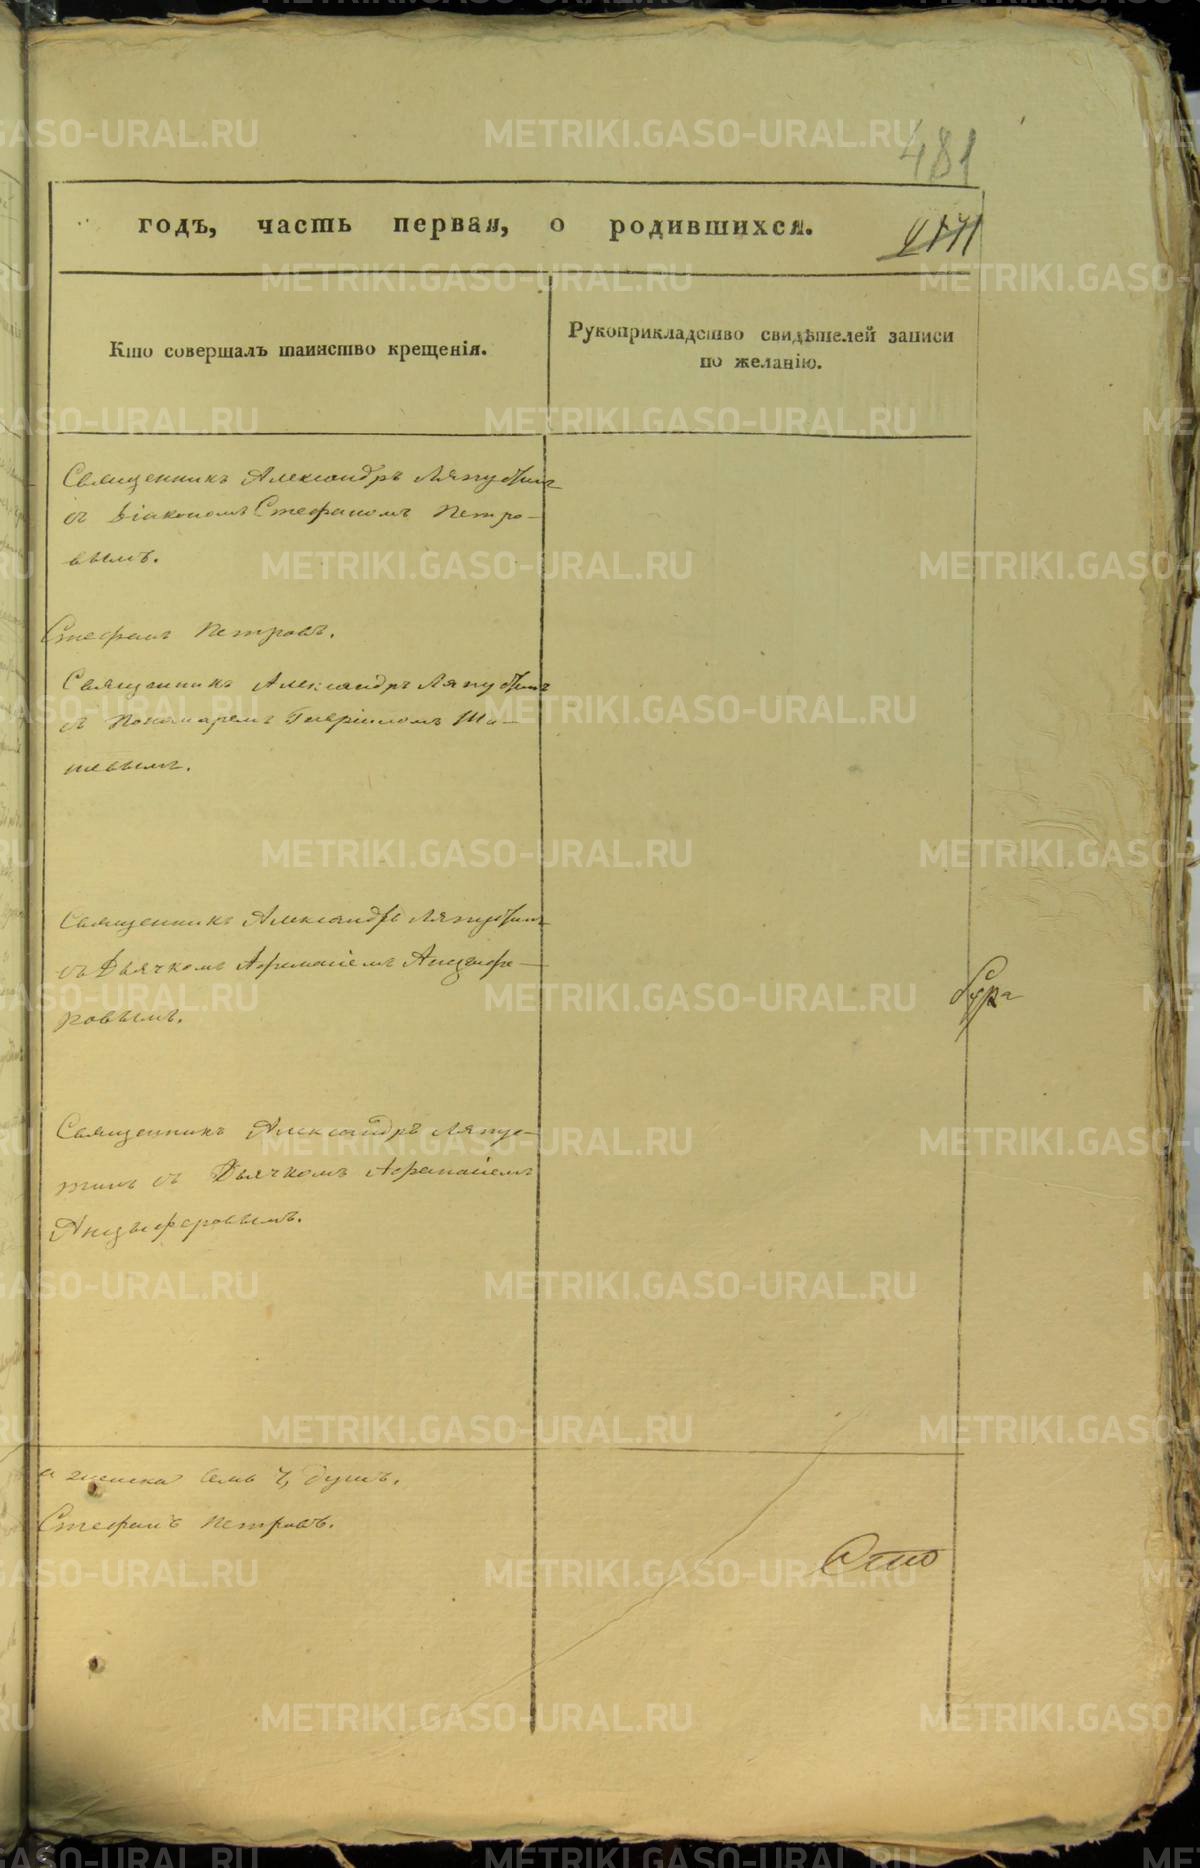 481
годъ, часть первая, о родившихся.
Кто совершалъ таинство крещенія.
Рукоприкладство свидѣтелей записи
по желанію.
Священникъ Александръ Ляпустинъ
съ Діакономъ Стефаномъ Петро-
вымъ.
Стефанъ Петровъ.
Священникъ Александръ Ляпустинъ
съ Пономаремъ Гавріиломъ
Священникъ Александръ Ляпустинъ
съ Дьячкомъ Афанасіемъ Анцыфе-
ровымъ.
Священникъ Александръ Ляпус-
тинъ съ Дьячкомъ Афанасіемъ
Анцыферовымъ.
женска семь 7, душъ.
Стефанъ Петровъ.
METRIKI.GASO-URAL.RU